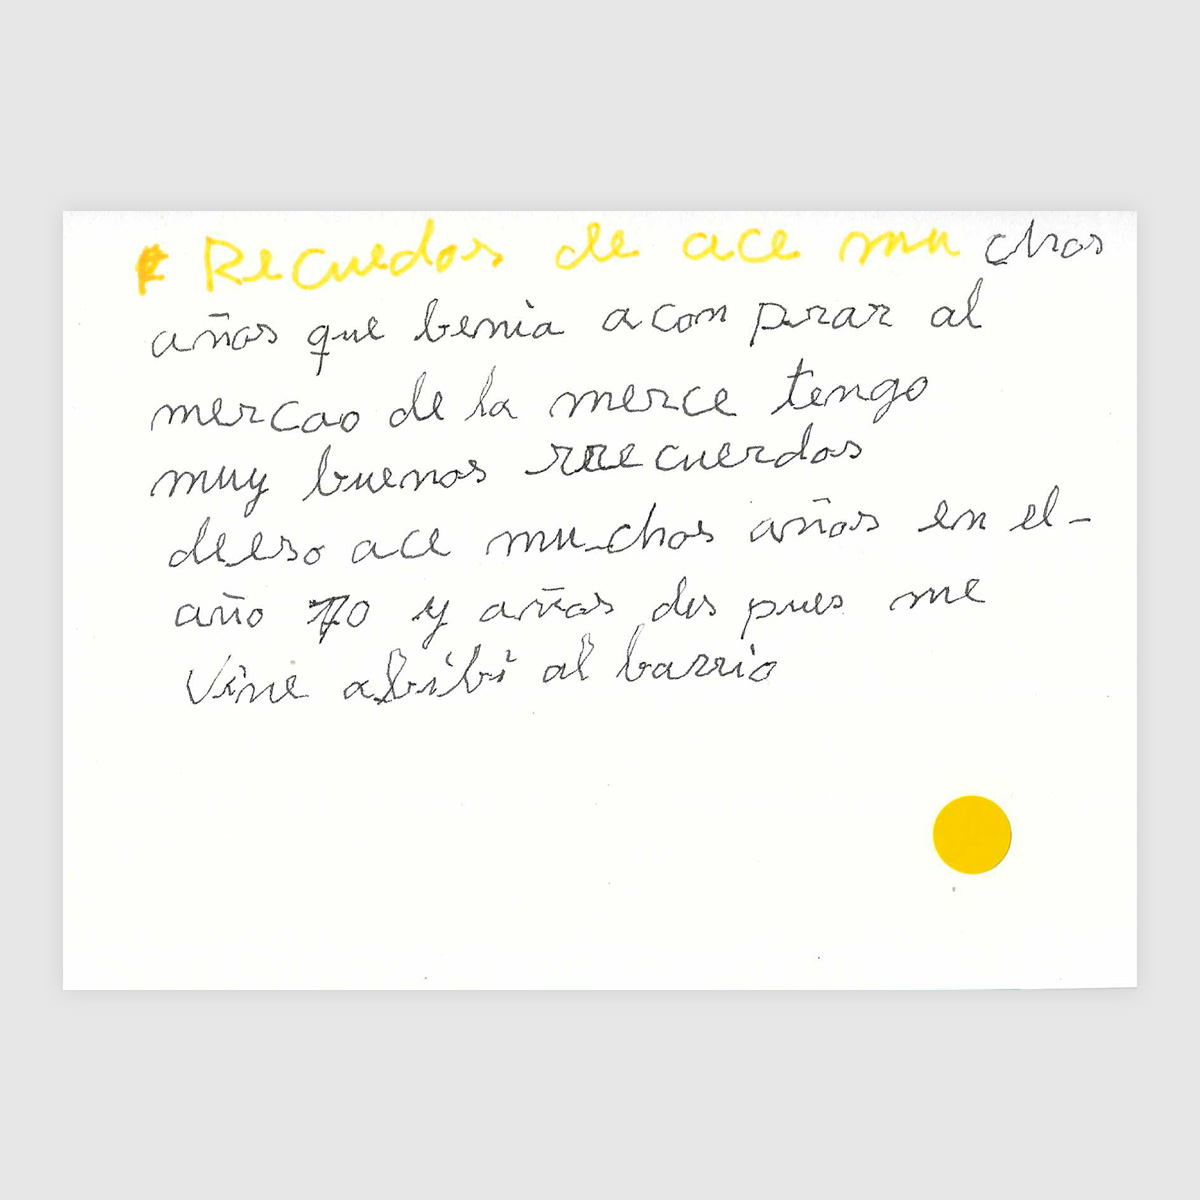 Recuedos de ace mu chos
años que benia acom prar al
mercao de la merce tengo
muy buenos rrecuerdos
deeso ace muchos años en el-
año 70 y años des pues me
vine abibi al barrio